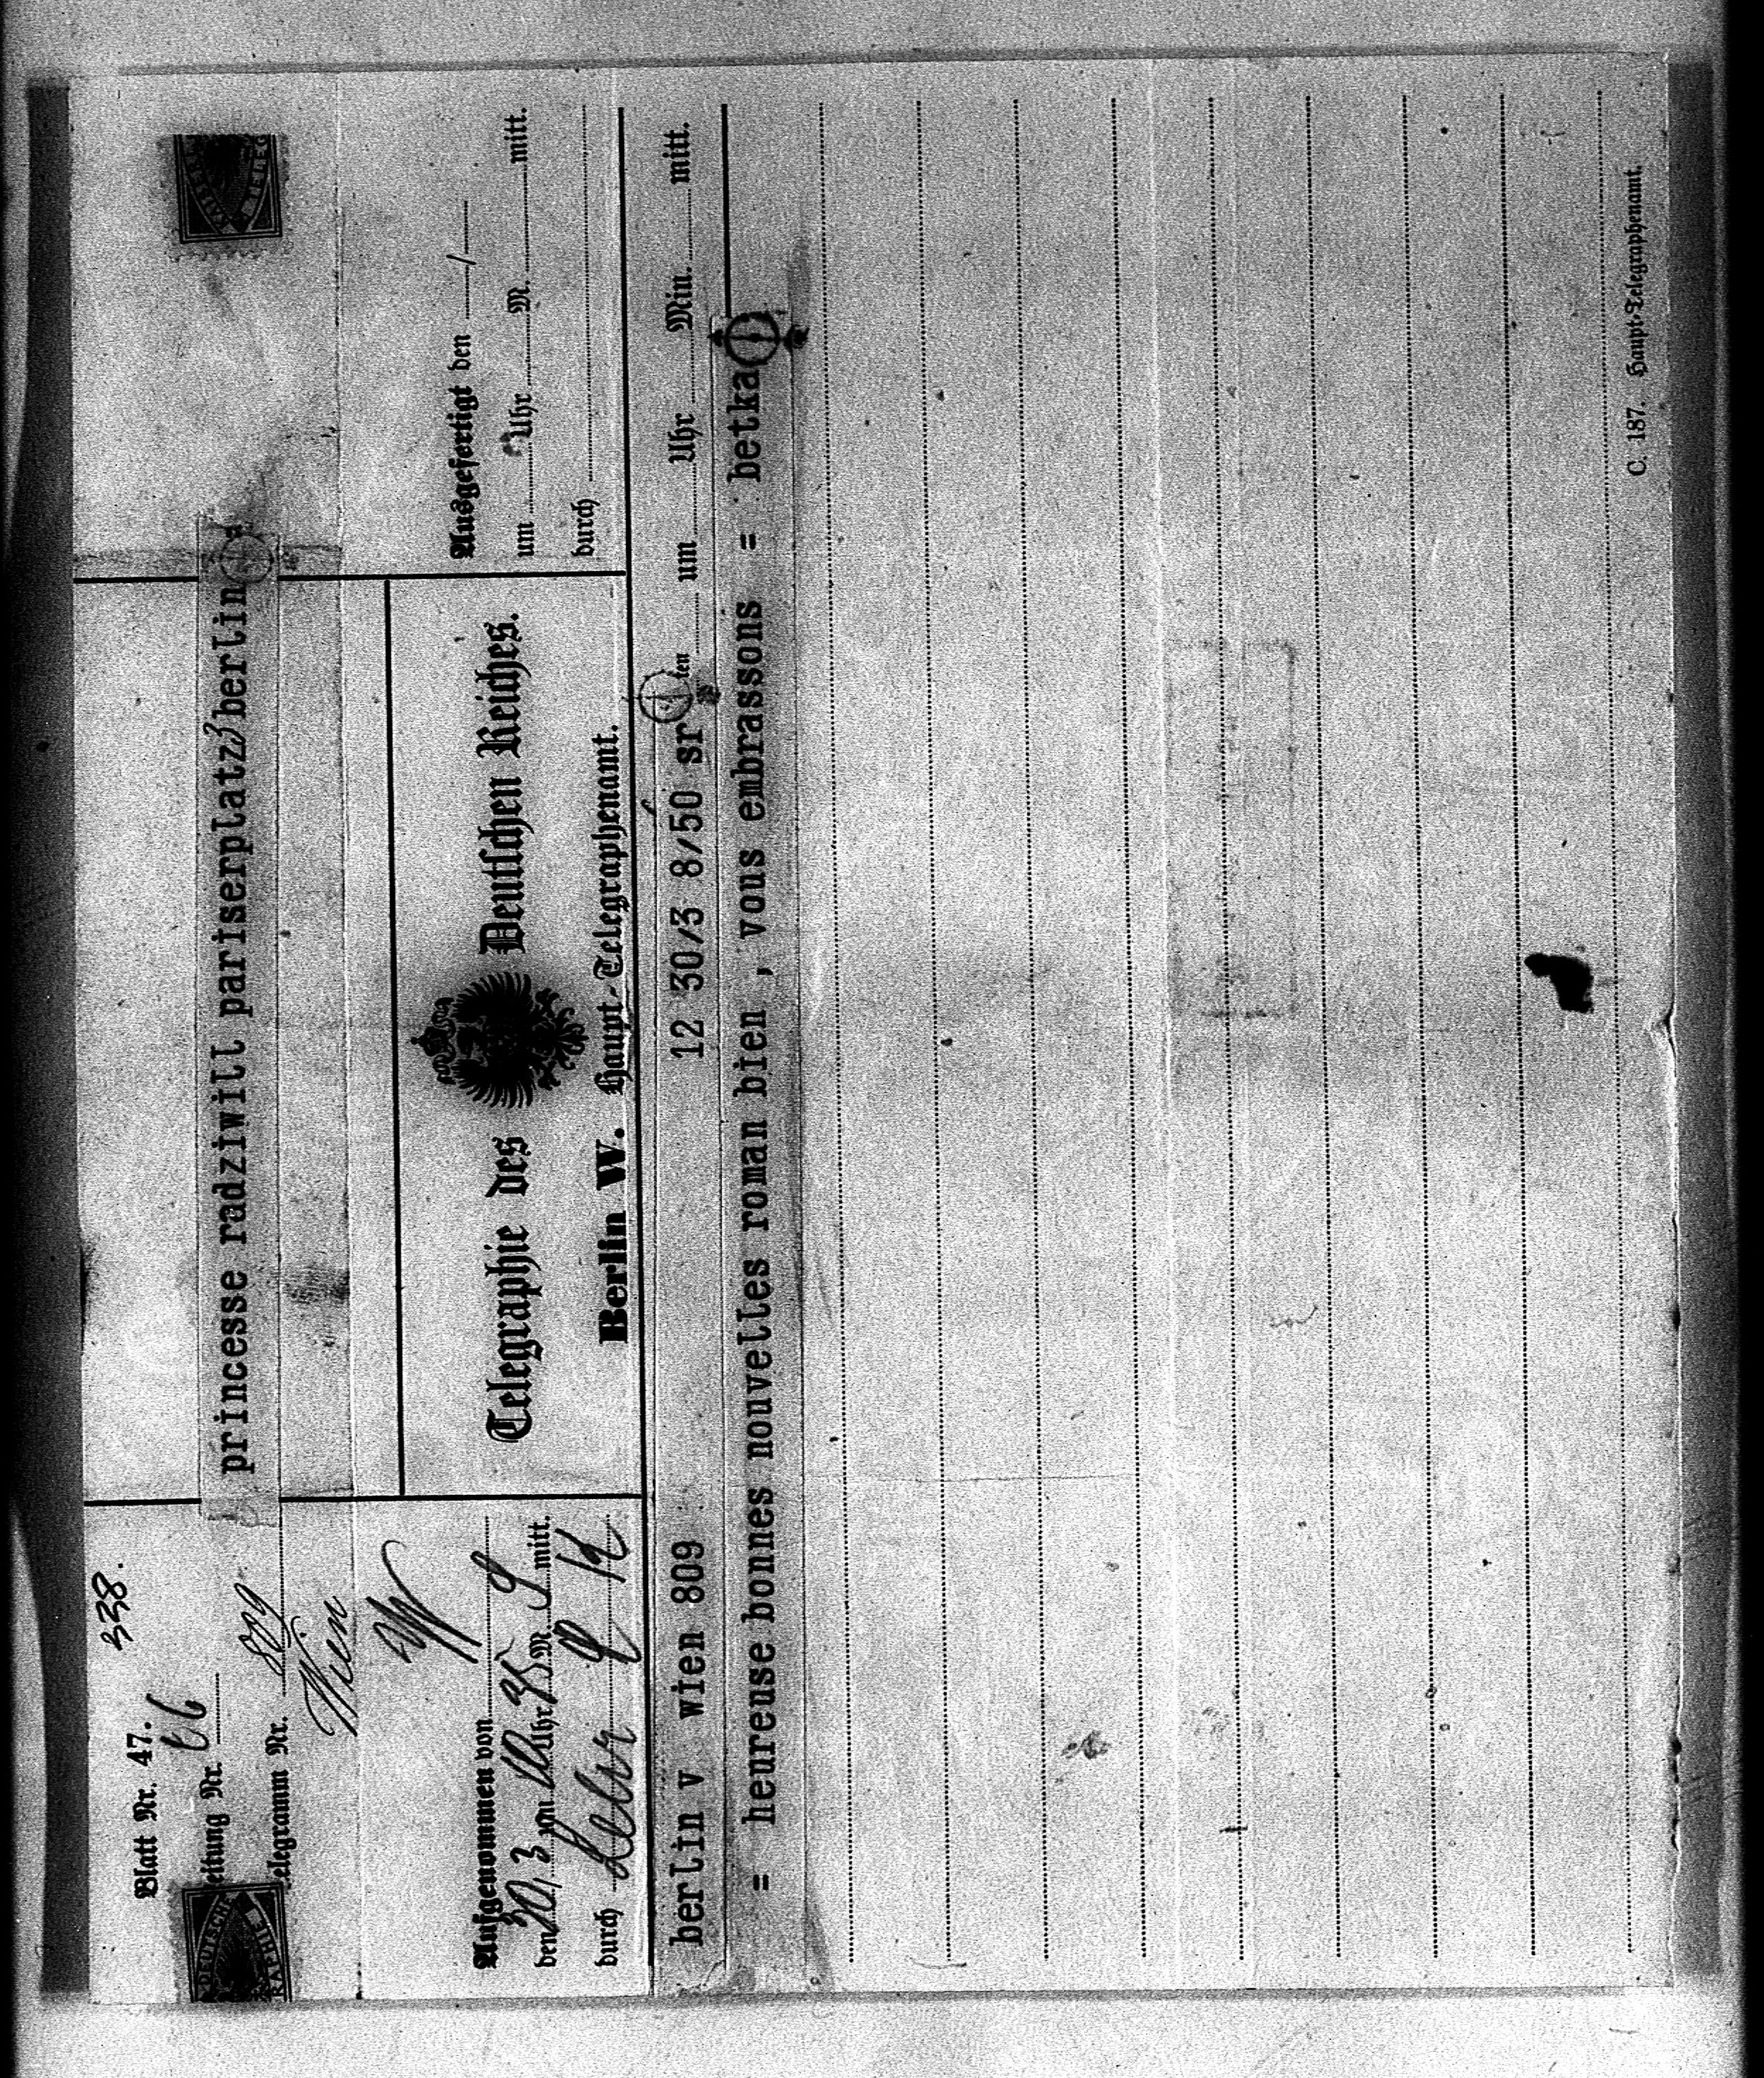 338.
Blatt Nr. 47.
Leitung Nr.
Telegramm Nr. 809
Wien
princesse radziwill pariserplatz 3/berlin
Aufgenommen von
den 30/3 um Uhr 35 M. mitt.
durch
Telegraphie des Deutschen Reiches.
Berlin W. Haupt-Telegraphenamt.
Ausgefertigt den
um Uhr M. mitt.
durch
berlin v wien 809 12 30/3 8/50 sr ten um Uhr Min. mitt.
= heureuse bonnes nouvelles roman bien , vous embrassons = betka
C. 187. Haupt-Telegraphenamt.
DEUTSCHE
RAPHIE
KAISERL
TELEG